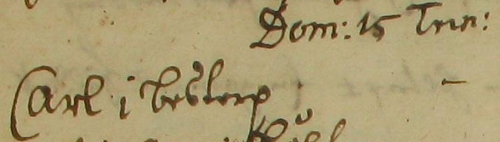 Dom: 15 Trin:
Carl i Besterp